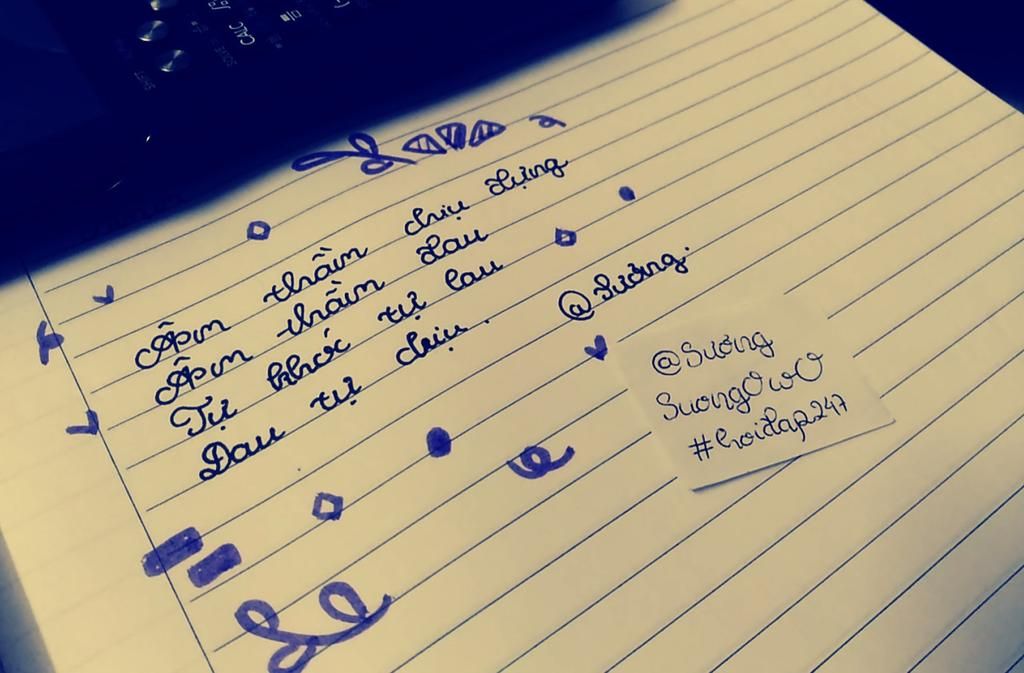 CALC
Âm thầm chịu đựng
Âm thầm đau
Tự khóc tự lau
Đau tự chịu. @Sương.
@Sương
SuongOwO
#hoidap247